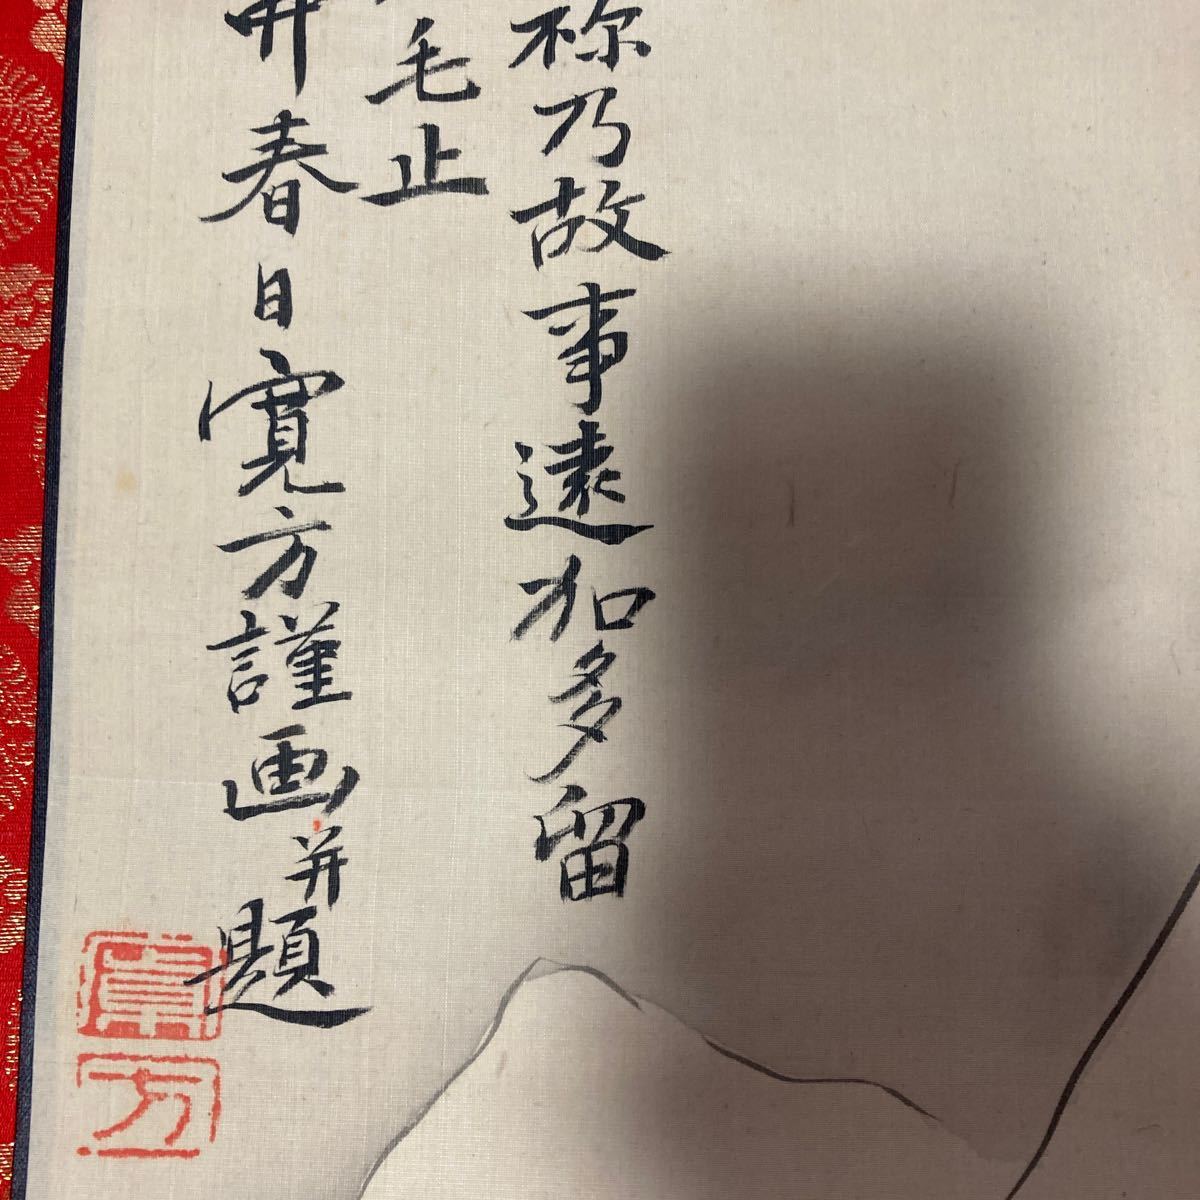 祢乃故事遠加多留
毛止
春日寛方謹画并題
方